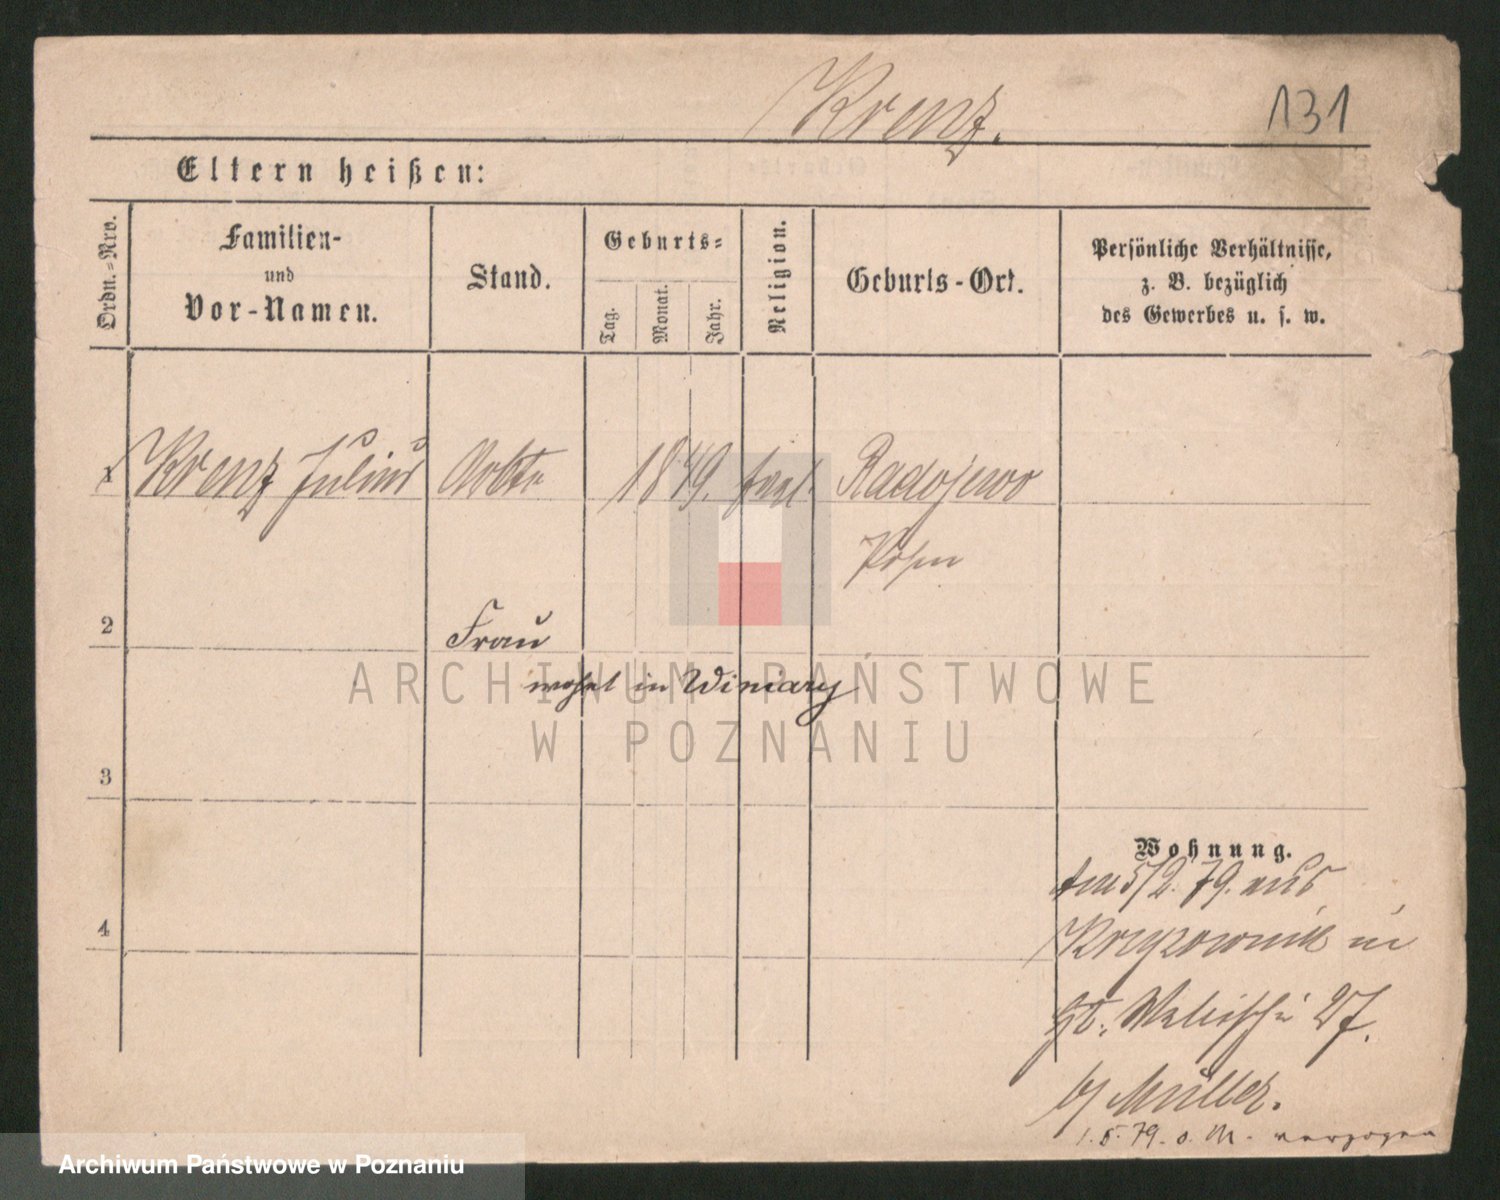 Krenz.
131
Eltern heißen:
Ordn.=Nro.
Familien-
und
Vor-Namen.
Stand.
Geburts=
Tag.
Monat.
Jahr.
Religion.
Geburts-Ort.
Persönliche Verhältnisse,
z. B. bezüglich
des Gewerbes u. s. w.
1 Krenz Julius Arbtr 1849. evgl. Radojewo
Posen
2 Frau
wohnt in Winiary
3
Wohnung.
4
am 5/2. 79. aus
Krzyzownik in
St. Wallischei 27.
b/ Müller.
1. 5. 79. o. M. verzogen
ARCHIWUM PAŃSTWOWE
W POZNANIU
Archiwum Państwowe w Poznaniu